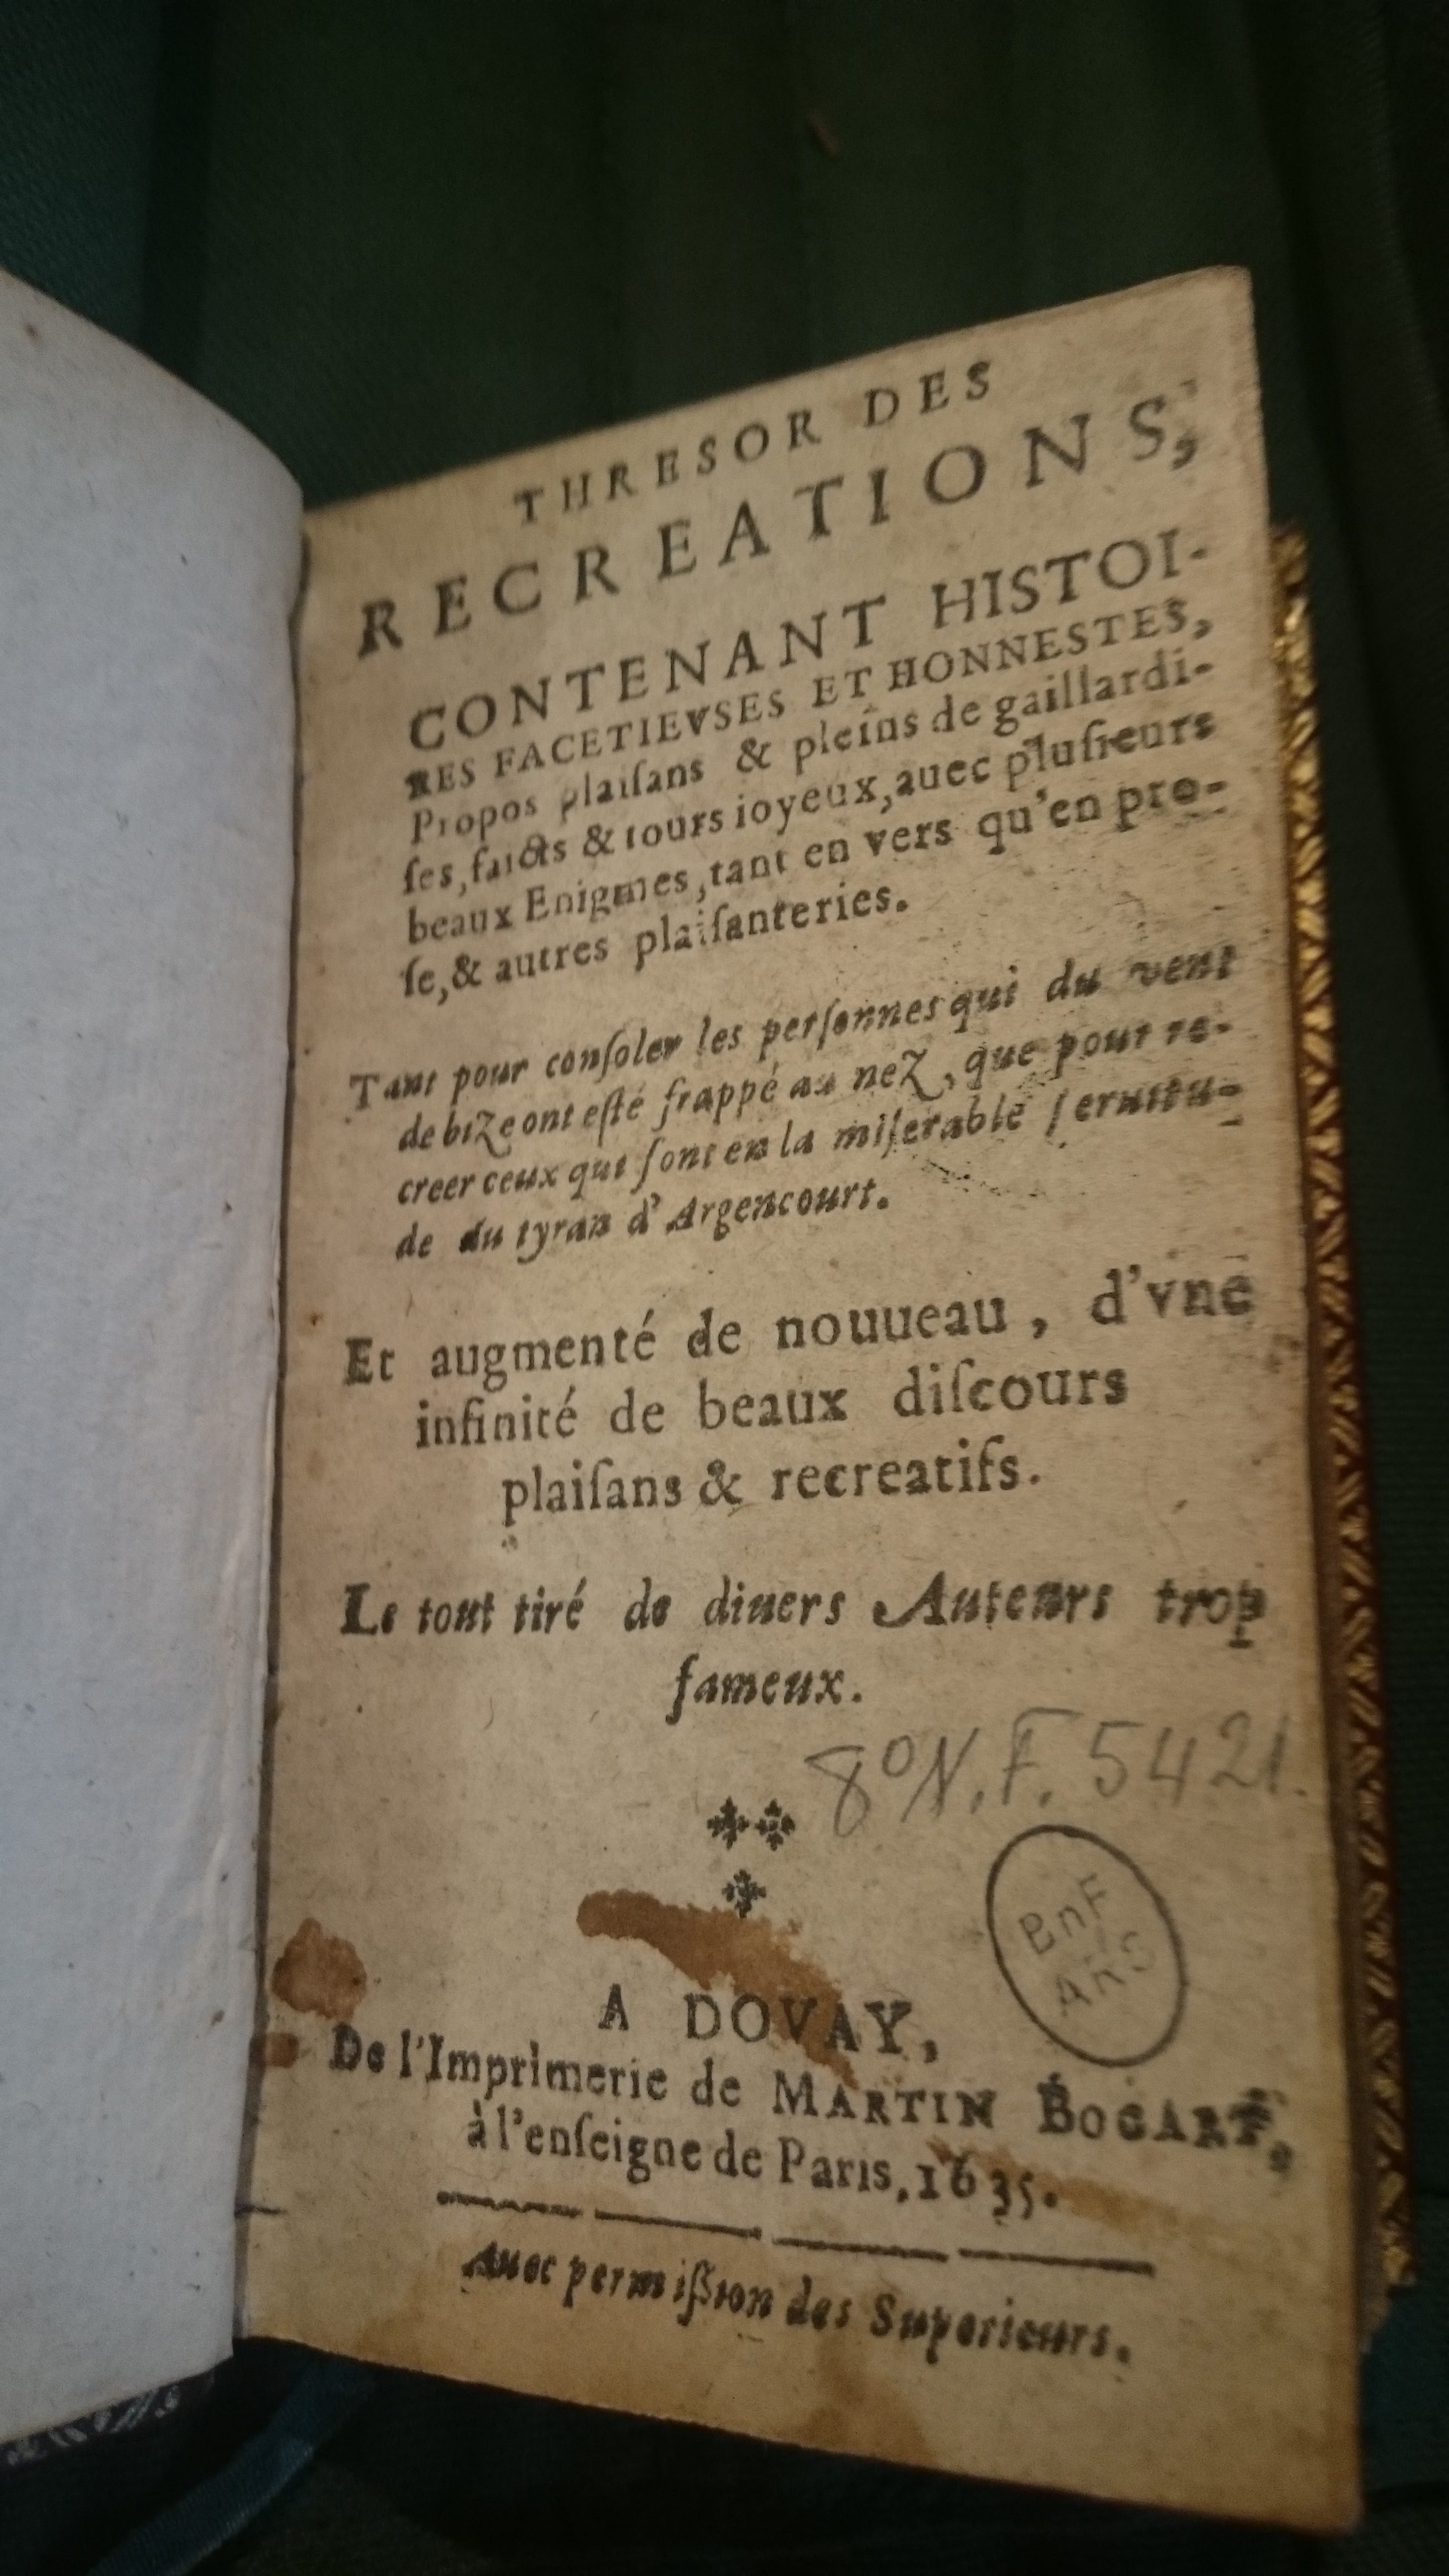 THRESOR DES
RECREATIONS,
CONTENANT HISTOI-
RES FACETIEVSES ET HONNESTES,
Propos plaiſans & pleins de gaillardi-
ſes, faicts & tours ioyeux, auec pluſieurs
beaux Enigmes, tant en vers qu'en pro-
ſe, & autres plaiſanteries.
Tant pour conſoler les perſonnes qui du vent
de bize ont eſté frappé au nez, que pour re-
creer ceux qui ſont en la miſerable ſeruitu-
de du tyran d'Argencourt.
Et augmenté de nouueau, d'vne
infinité de beaux diſcours
plaiſans & recreatifs.
Le tout tiré de diuers Auteurs trop
fameux.
8° N.F. 5421.
BnF
ARS
A DOVAY,
De l'Imprimerie de MARTIN BOGART,
à l'enſeigne de Paris, 1635.
Auec permiſſion des Superieurs.